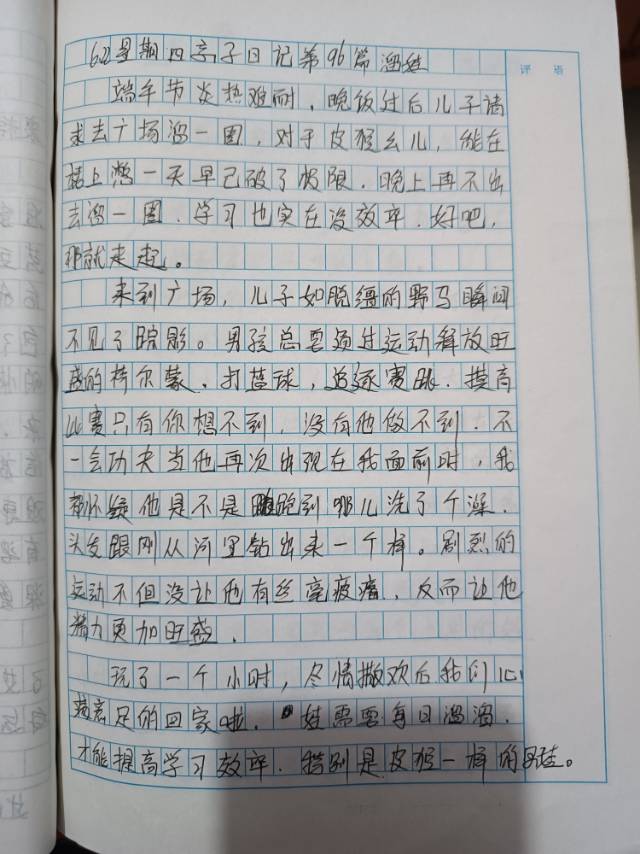 6.22星期四亲子日记第96篇遛娃
端午节炎热难耐，晚饭过后儿子请
求去广场溜一圈，对于皮猴幺儿，能在
晚上再不出
去溜一圈，学习也实在没效率，好吧，
那就走起。
来到广场，儿子如脱缰的野马瞬间
不见了踪影。男孩总要通过运动释放旺
盛的荷尔蒙，打篮球，追逐赛跑，摸高
比赛只有你想不到，没有他做不到，不
一会功夫当他再次出现在我面前时，我
都怀疑他是不是跑到哪儿洗了个澡，
头发跟刚从河里钻出来一个样。剧烈的
运动不但没让他有丝毫疲惫，反而让他
精力更加旺盛，
玩了一个小时，尽情撒欢后我们心
满意足的回家啦，娃需要每日溜溜，
才能提高学习效率，特别是皮猴一样的男娃。
评 语